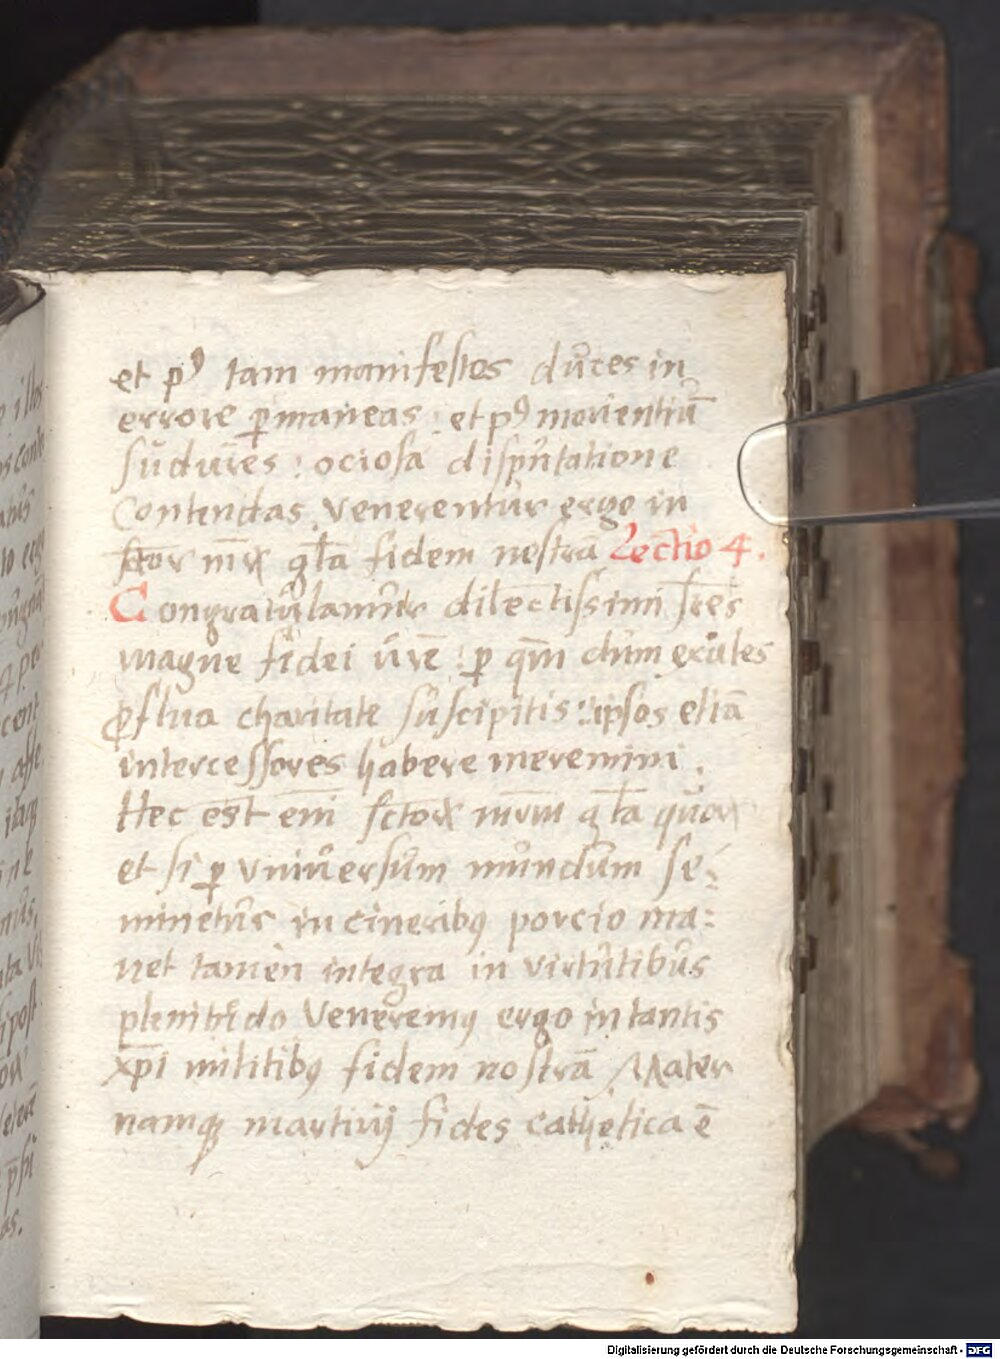 et pꝰ tam manifestos duces in
errore ꝑmaneas : et pꝰ morientiū
sudores : ociosa disputatione
contendas . venerentur ergo in
mr̄x gl̄a fidem nostrā Lectio 4.
Congratulamur dilectissimi fr̄es
magne fidei vr̄e : ꝑ qm̄ dum exules
ꝓflua charitate suscipitis : ipsos etiā
intercessores habere meremini .
Hec est em̄ sctorꝝ mr̄m gl̄a quorꝝ
et si ꝑ vniuersum mundum se:
minetur in cineribꝰ porcio ma:
net tamen integra in virtutibus
plenitudo Veneremꝰ ergo in tantis
xp̄i militibꝰ fidem nostrā Mater
namqꝫ martirij fides catholica ē
Digitalisierung gefördert durch die Deutsche Forschungsgemeinschaft - DFG